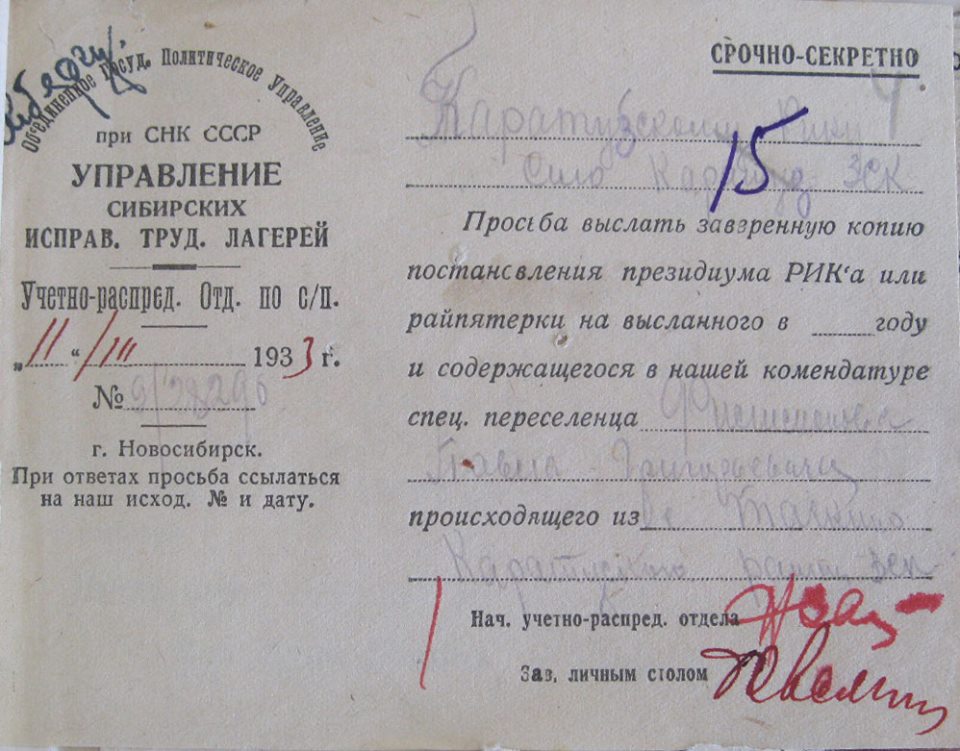 Объединенное Госуд. Политическое Управление
при СНК СССР
УПРАВЛЕНИЕ
СИБИРСКИХ
ИСПРАВ. ТРУД. ЛАГЕРЕЙ
Учетно-распред. Отд. по с/п.
„11“ /III 1933 г.
№
г. Новосибирск.
При ответах просьба ссылаться
на наш исход. № и дату.
СРОЧНО-СЕКРЕТНО
4
Каратузскому Рику
15
Село Каратуз ЗСК
Просьба выслать заверенную копию
постановления президиума РИК‘а или
райпятерки на высланного в ____ году
и содержащегося в нашей комендатуре
спец. переселенца
Павла Григорьевича
происходящего из с. Таскино
Каратузского района ЗСК
Нач. учетно-распред. отдела
Зав. личным столом